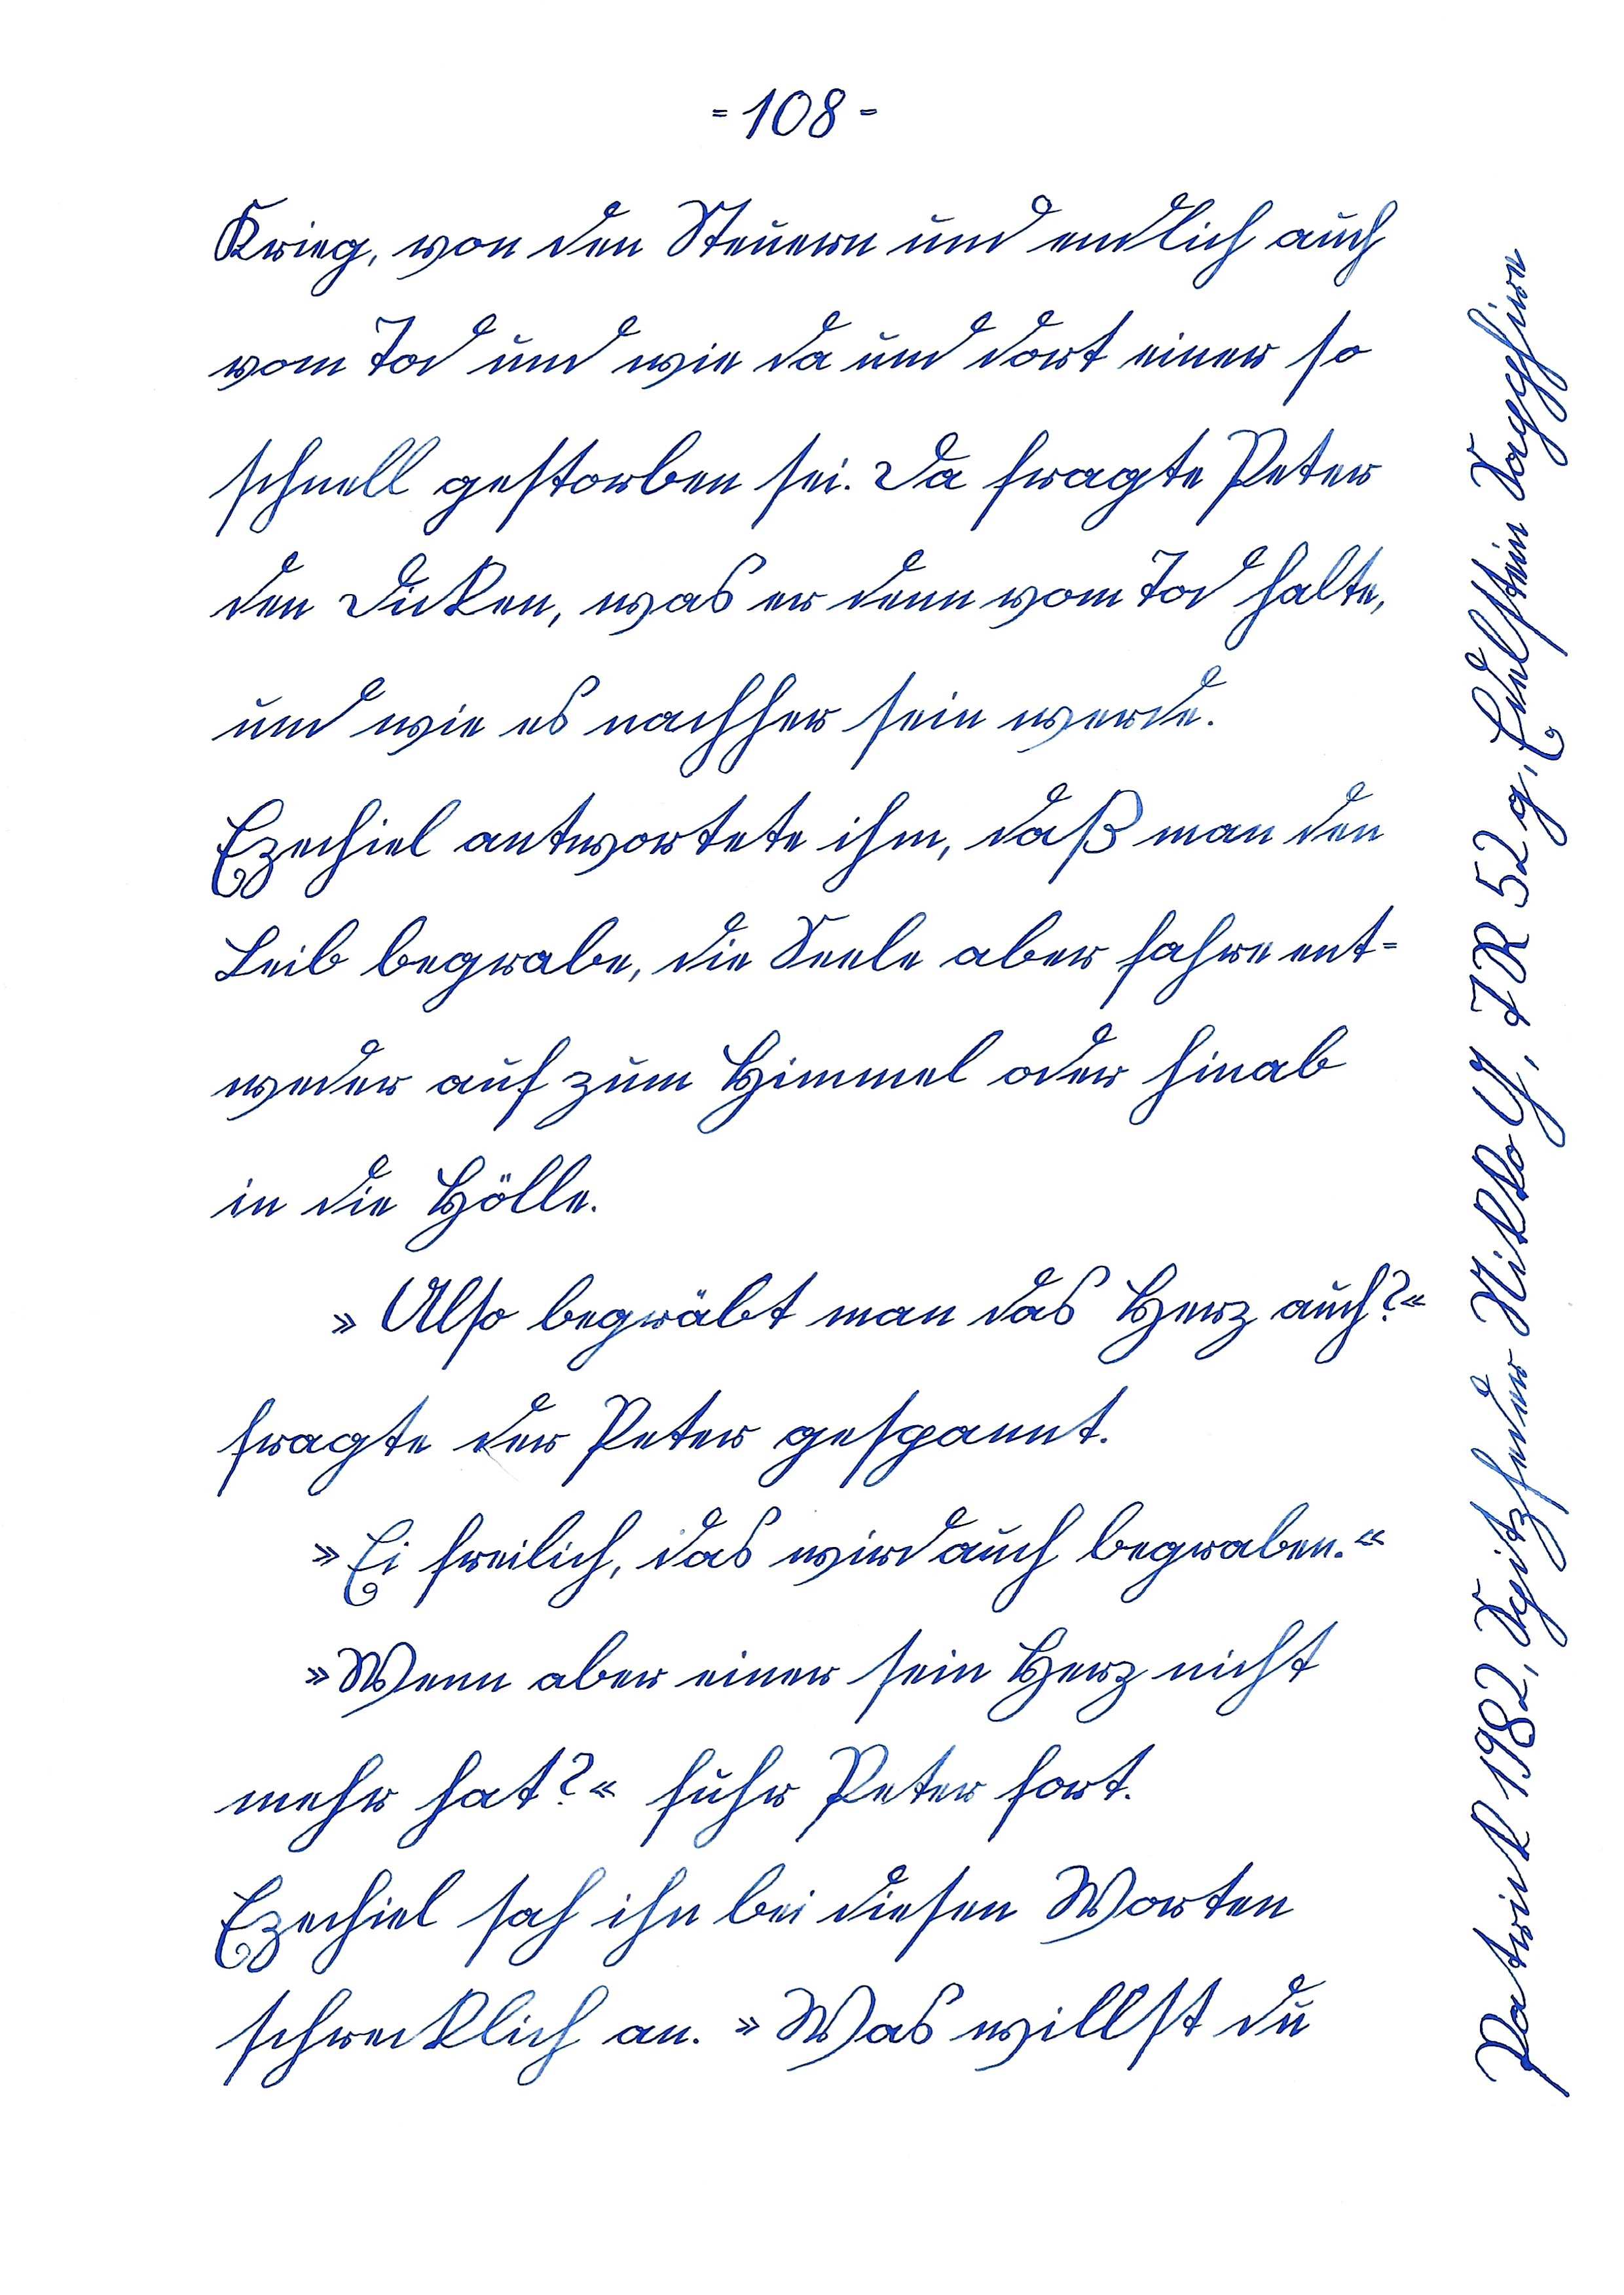 -108-
Krieg, von den Steuern und endlich auch
vom Tod und wie da und dort einer so
schnell gestorben sei. Da fragte Peter
den Dicken, was er denn vom Tod halte,
und wie es nachher sein werde.
Ezechiel antwortete ihm, daß man den
Leib begrabe, die Seele aber fahre ent=
weder auf zum Himmel oder hinab
in die Hölle.
»Also begräbt man das Herz auch?«
fragte der Peter gespannt.
»Ei freilich, das wird auch begraben.«
»Wenn aber einer sein Herz nicht
mehr hat?« fuhr Peter fort.
Ezechiel sah ihn bei diesen Worten
schrecklich an. »Was willst du
Patrick 1982, Spitzfeder Nikko G, JR 52 g, Edelstein Saphire